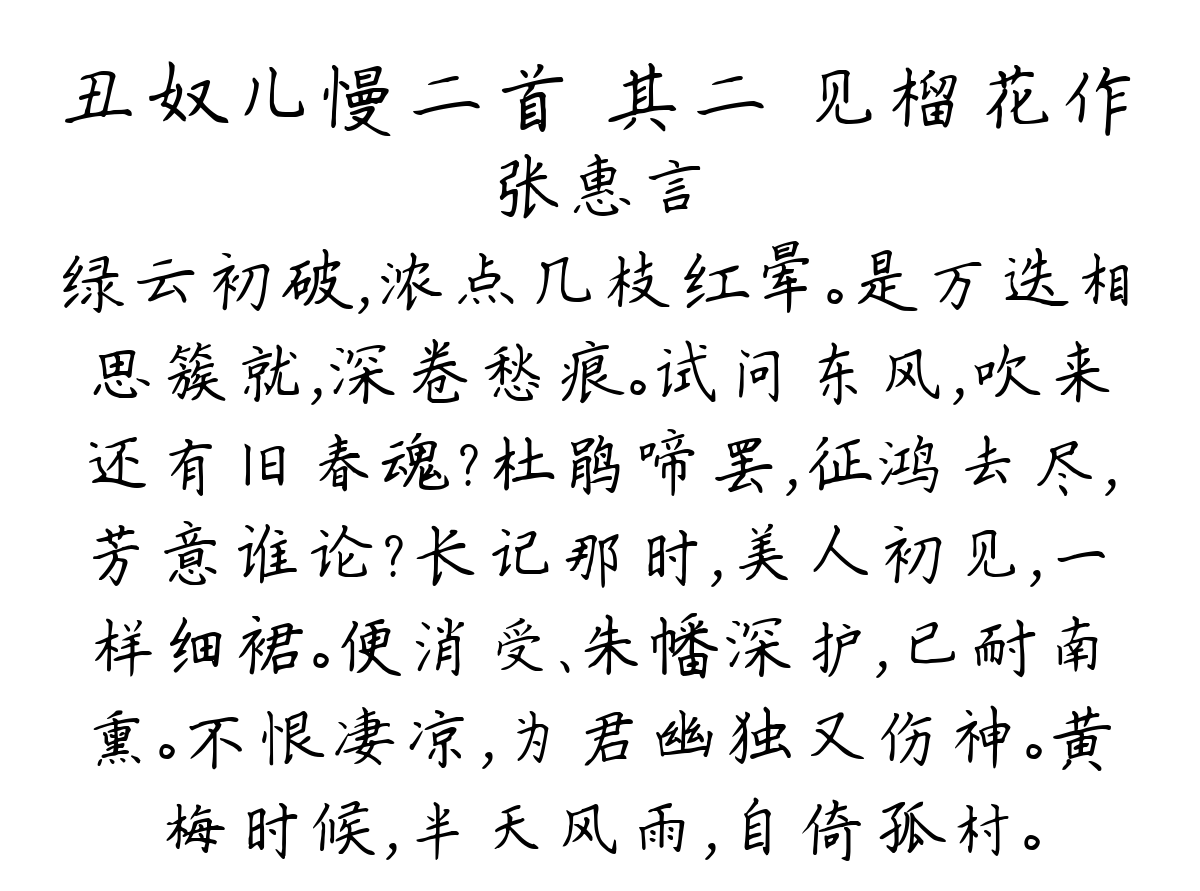 丑奴儿慢二首 其二 见榴花作
张惠言
绿云初破,浓点几枝红晕。是万迭相
思簇就,深卷愁痕。试问东风,吹来
还有旧春魂?杜鹃啼罢,征鸿去尽,
芳意谁论?长记那时,美人初见,一
样细裙。便消受、朱幡深护,已耐南
熏。不恨凄凉,为君幽独又伤神。黄
梅时候,半天风雨,自倚孤村。